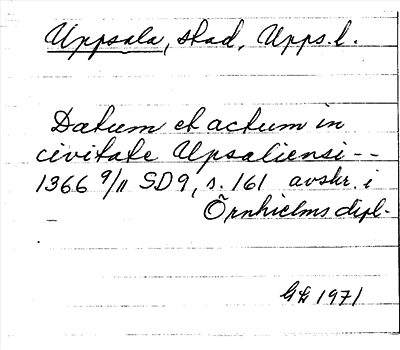 Uppsala, stad, Upps.l.
Datum et actum in
civitate Upsaliensi --
1366 9/11 SD9, s. 161 avskr. i
Örnhielms dipl.
GL 1971